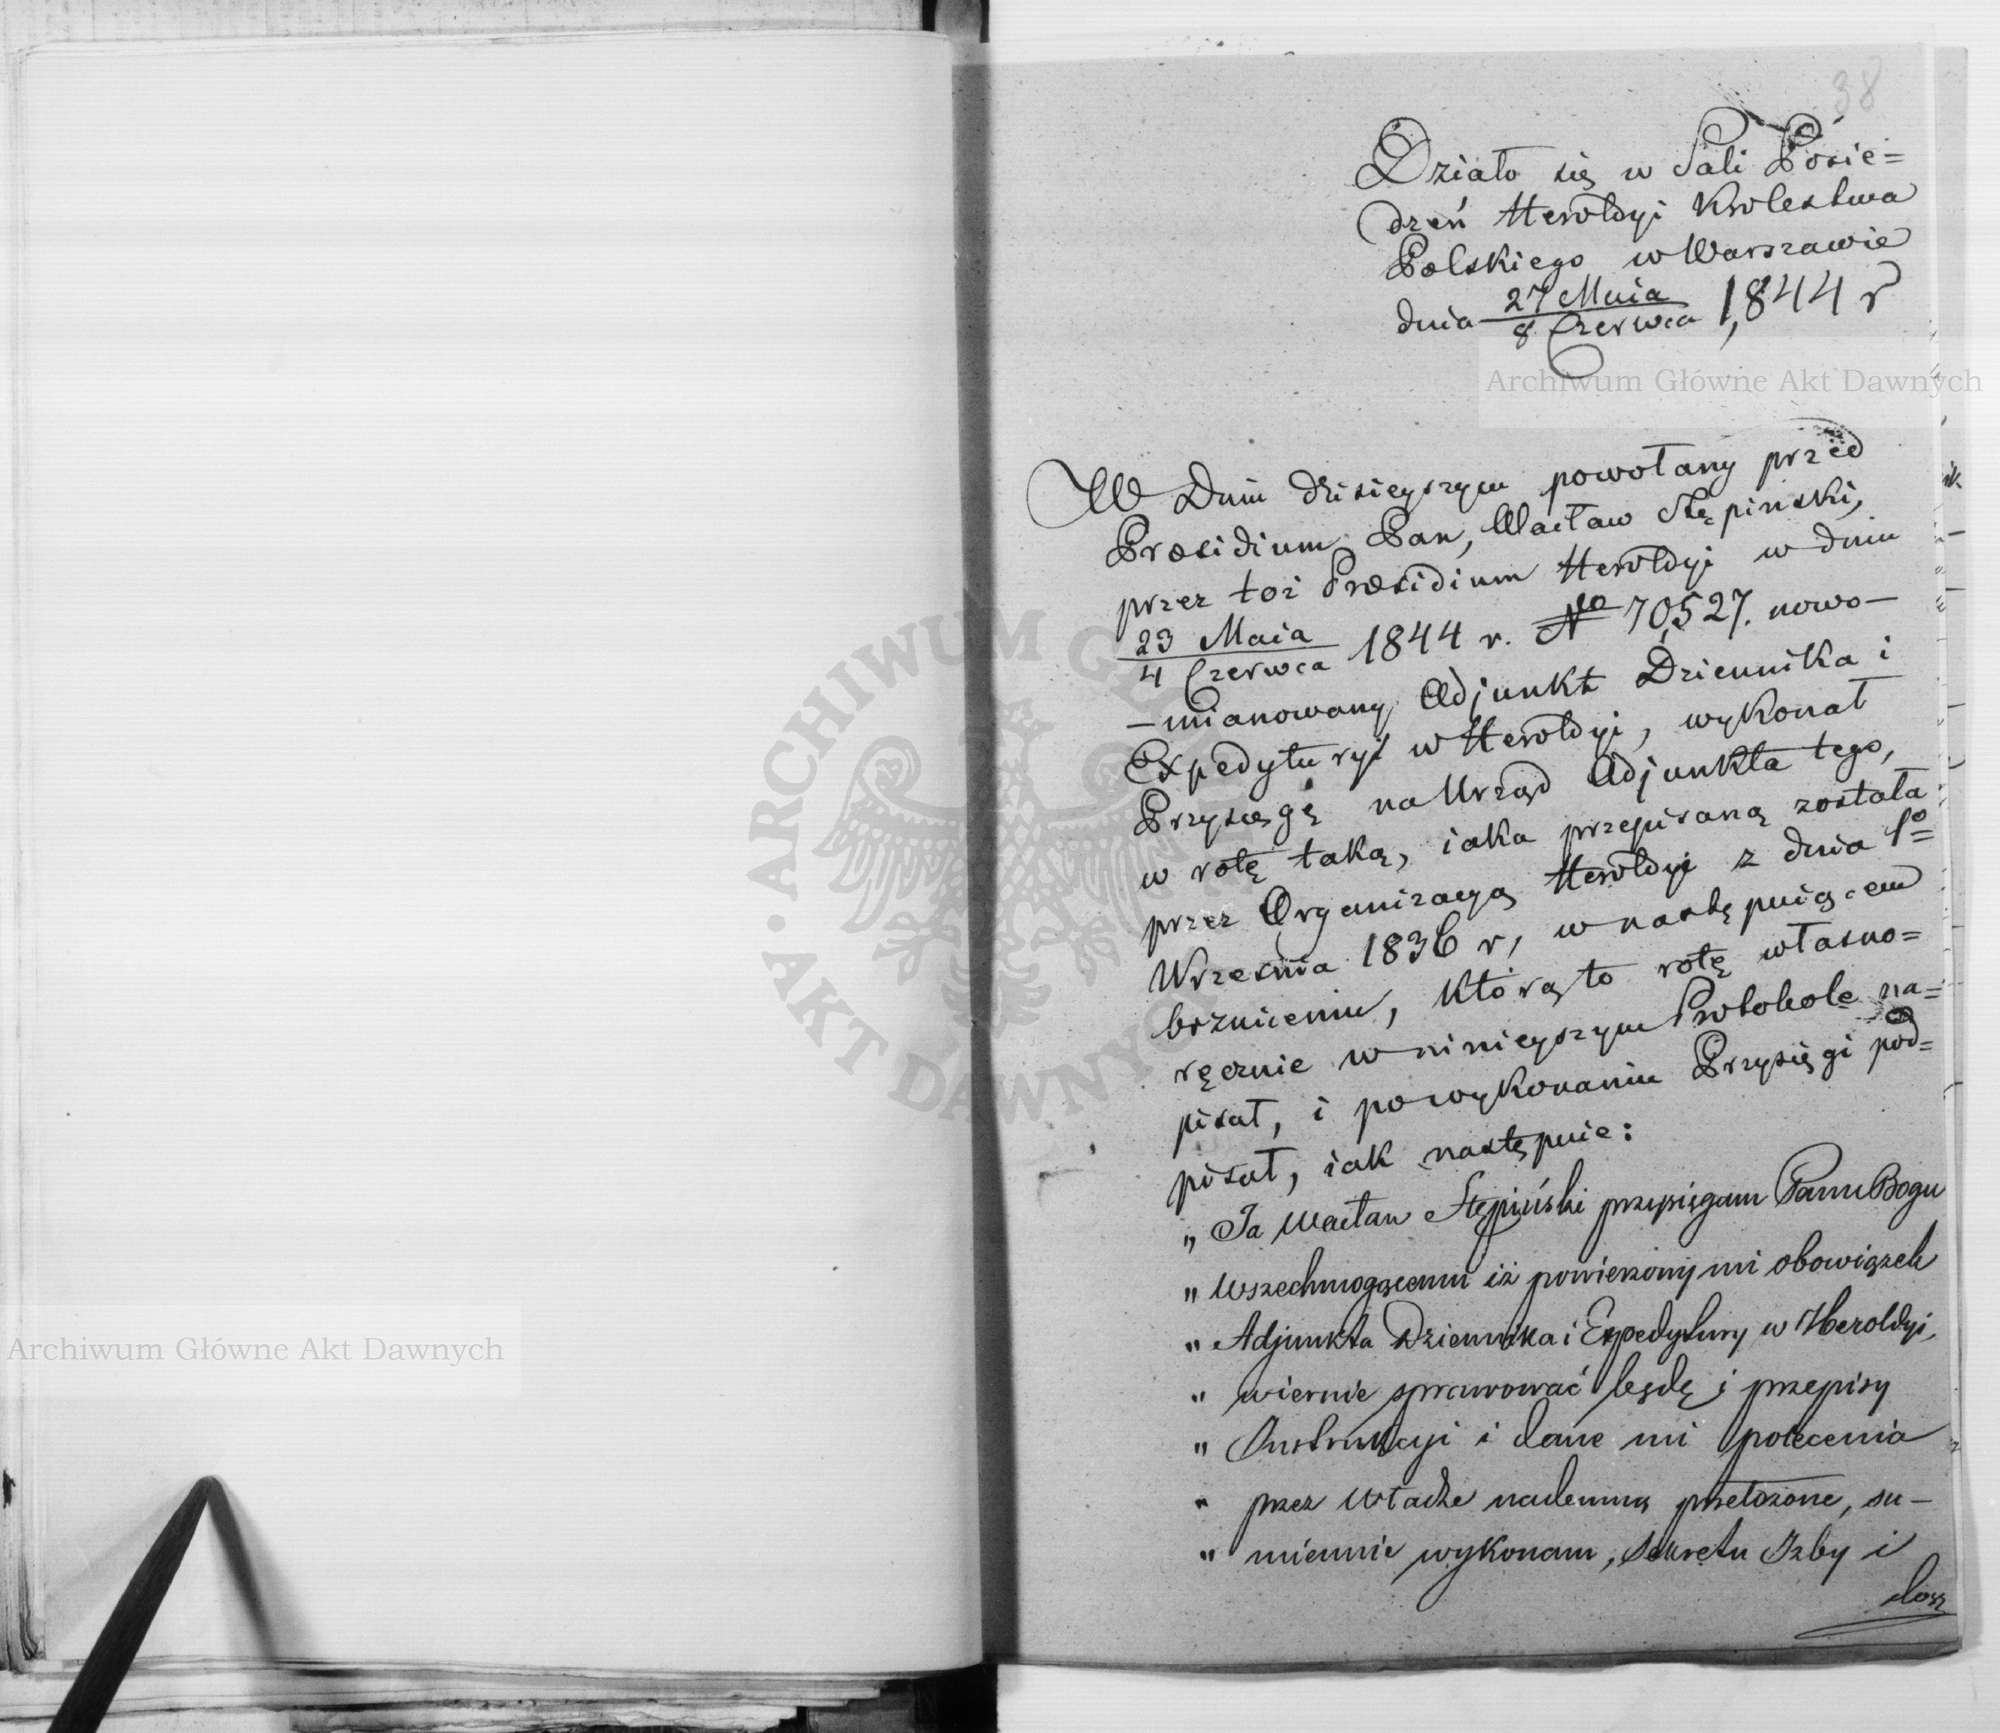 38
Działo się w Sali Posie=
dzeń Heroldyi Krolestwa
Polskiego w Warszawie
dnia 27 Maia / 8 Czerwca 1844 r
W Dniu dzisieyszym powołany przed
Præsidium Pan, Wacław Stępinski,
przez toż Præsidium Heroldyi w dniu
23 Maia / 4 Czerwca 1844 r. No 70527. nowo—
—mianowany Adjunkt Dziennika i
Expedytury w Heroldyi, wykonał
Przysięgę na Urząd Adjunkta tego,
w rotę taką, iaka przepisaną została
przez Organizacyą Heroldyi z dnia 1o
Wrzesnia 1836 r, w następuiącem
brzmieniu, którą to rotę własno=
ręcznie w ninieyszym Protokole na=
pisał, i po wykonaniu Przysięgi pod=
pisał, iak następuie:
„ Ja Wacław Stępiński przysięgam Panu Bogu
„ Wszechmogącemu iż powierzony mi obowiązek
„ Adjunkta Dziennika i Expedytury w Heroldyi,
„ wiernie sprawować będę i przepisy
„ Instrukcyi i dane mi polecenia
„ przez Władze nademną przełożone, su—
„ miennie wykonam, Sekretu Izby i
Archiwum Główne Akt Dawnych
Archiwum Główne Akt Dawnych